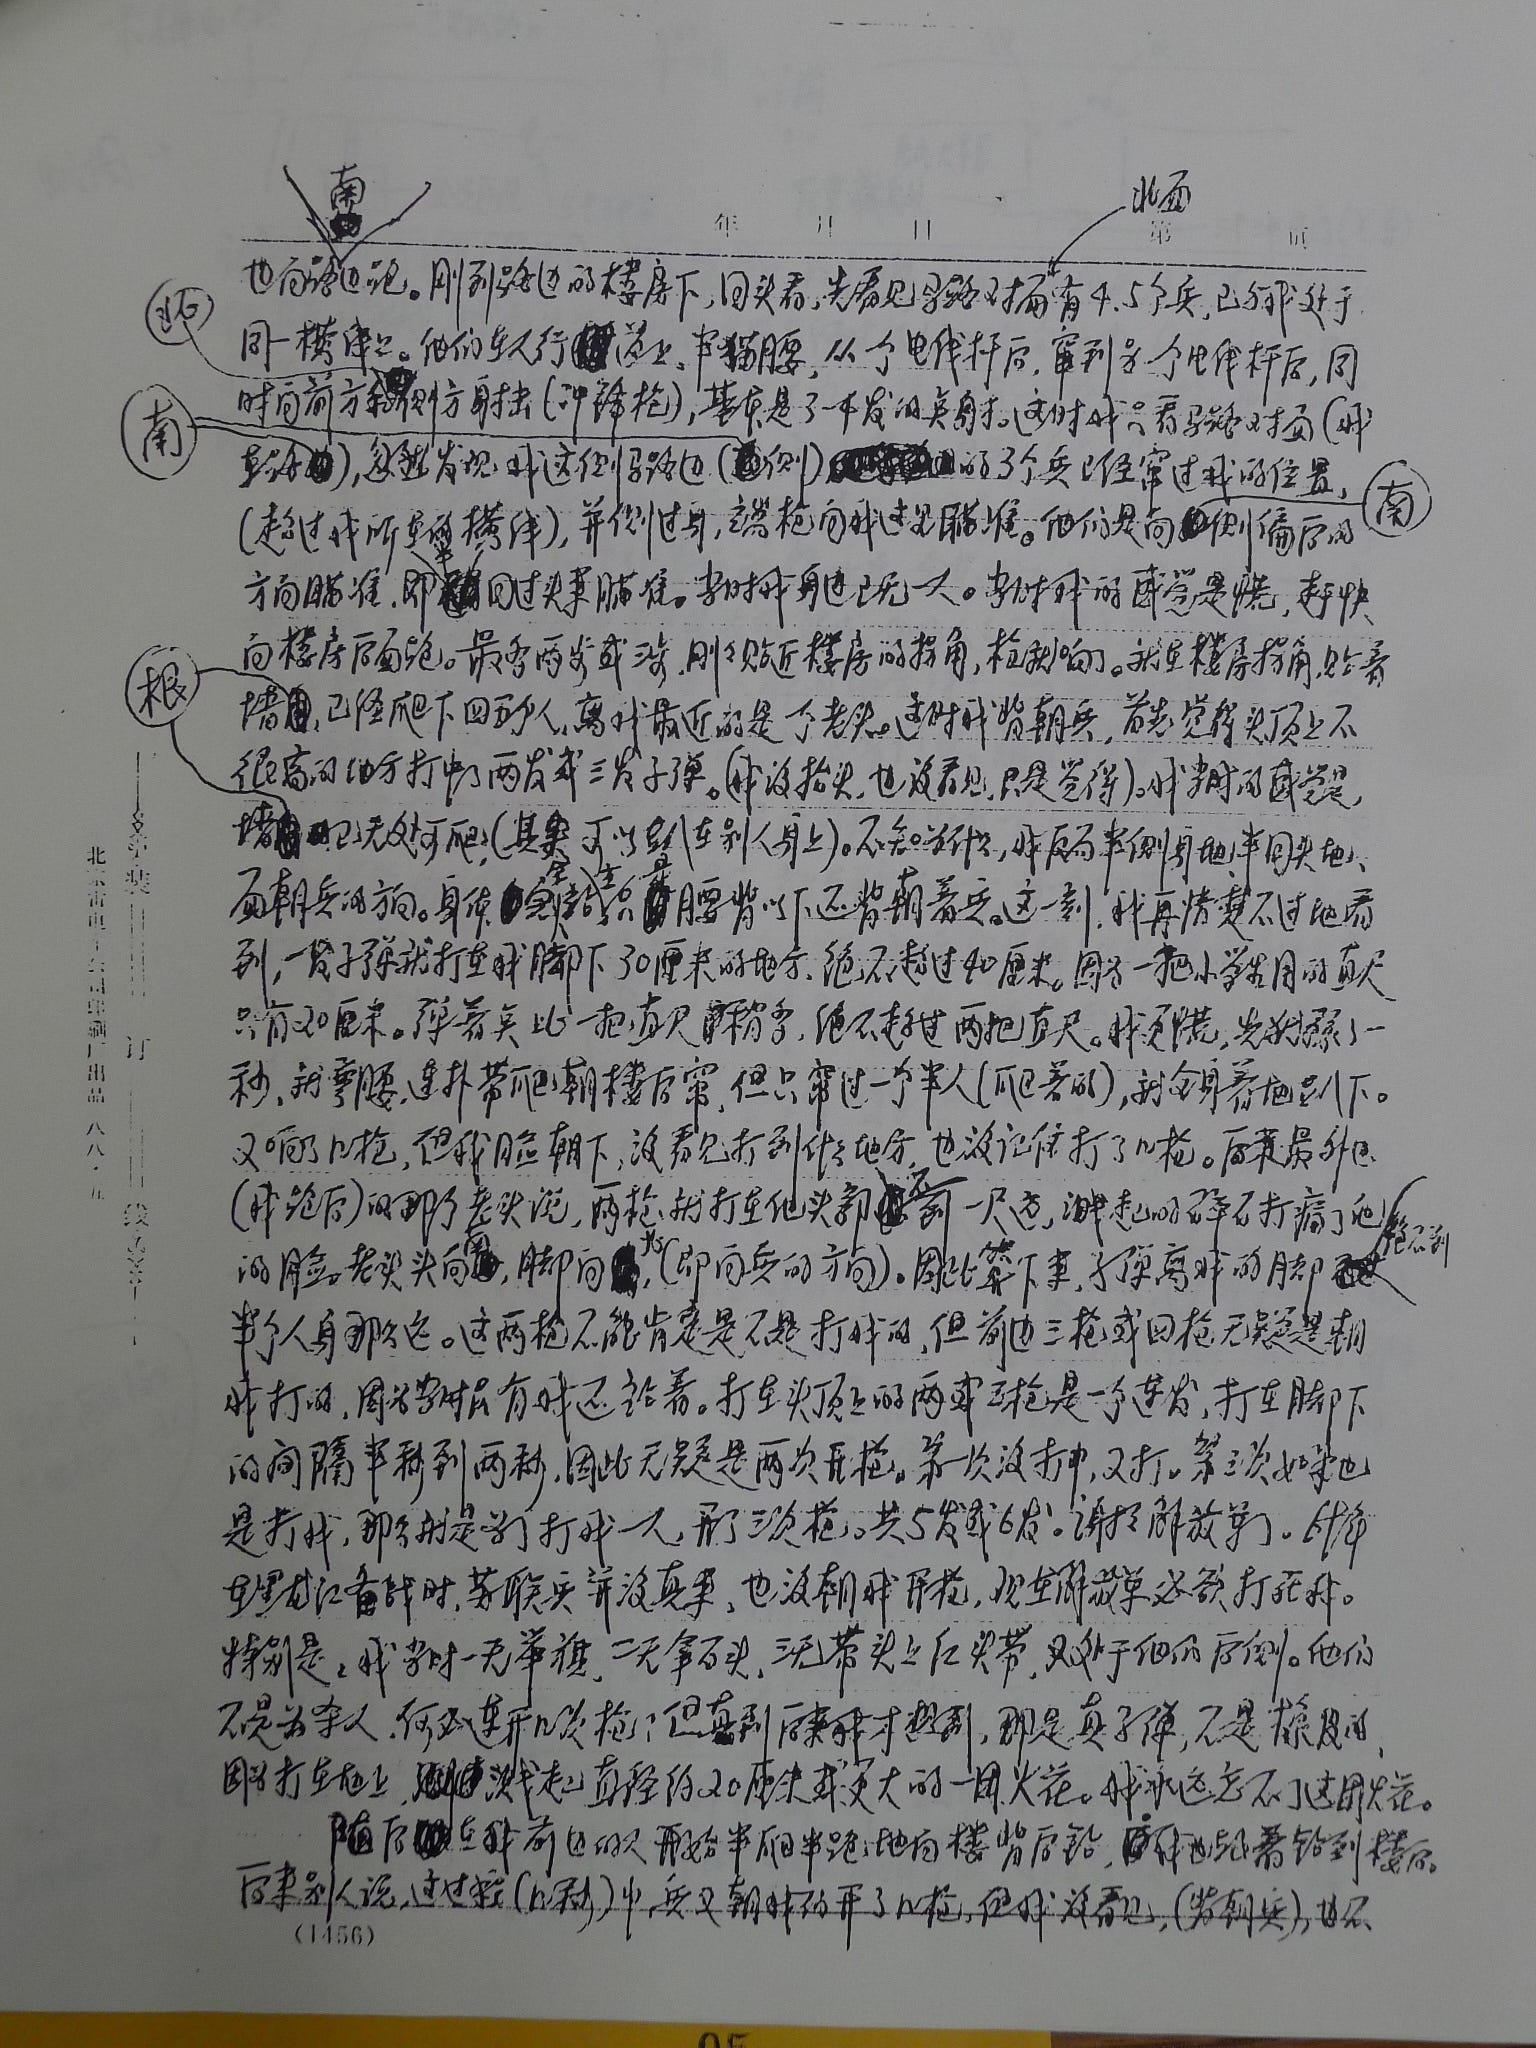 南
北面
年 月 日 第 页
也向路边跑。刚到路边的楼房下,回头看,先看见马路对面有4.5个兵,已与我处于
同一横线上。他们在人行道上,半猫腰,从一个电线杆后,窜到另一个电线杆后,同
时向前方和侧方射击(冲锋枪),基本是
这时我只看马路对面(我
忽然发现我这侧马路边(南侧)的3个兵已经窜过我的位置,
南
(超过我所在的横线),并侧过身,端枪向我这儿瞄准。他们是向南侧偏后的
南
方向瞄准,即回过头来瞄准。当时我身边已无一人。当时我的感觉是慌,赶快
向楼房后面跑。最多两步或三步,刚刚贴近楼房的拐角,枪就响了。就在楼房拐角,贴着
根
墙根,已经爬下四五个人,离我最近的是一个老头。这时我背朝兵,首先觉得头顶上不
很高的地方打中了两发或三发子弹。(我没抬头,也没看见,只是觉得)。我当时的感觉是,
墙根已无处可爬,(其实可以趴在别人身上)。不知为什么,我反而半侧身地、半回头地、
面朝兵的方向。身体
腰背以下还背朝着兵。这一刻,我再清楚不过地看
到,一发子弹就打在我脚下30厘米的地方,绝不超过40厘米。因为一把小学生用的直尺
只有20厘米。弹着点比一把直尺稍多,绝不超过两把直尺。我更慌,先犹豫了一
秒,就弯腰,连扑带爬朝楼后窜,但只窜过一个半人(爬着的),就全身着地趴下。
又响了几枪,但我脸朝下,没看见打到什么地方,也没记住打了几枪。后来最外边
(我跑后)的那个老头说,两枪就打在他头部
一尺远,溅起的碎石打痛了他
的脸。老头头向南,脚向北,(即向兵的方向)。因此算下来,子弹离我的脚绝不到
半个人身那么远。这两枪不能肯定是不是打我的,但前边三枪或四枪无疑是朝
我打的,因为当时只有我还站着。打在头顶上的两或三枪是一个连发,打在脚下
的间隔半秒到两秒,因此无疑是两次开枪。第一次没打中,又打。第三次如果也
是打我,那么就是专门打我一人,开了三次枪。共5发或6发。谢谢解放军了。69年
在黑龙江备战时,苏联兵并没真来,也没朝我开枪,现在解放军必欲打死我。
特别是,我当时一无举旗,二无拿石头,三无带头上红头带,又处于他们后侧。他们
不是为杀人,何必连开几次枪?但直到后来我才想到,那是真子弹,不是橡皮的,
因为打在地上,溅起直径约20厘米或更大的一团火花。我永远忘不了这团火花。
随后在我前边的人开始半爬半跑地向楼背后钻,我也跟着钻到楼后。
后来别人说,这过程(几秒)中,兵又朝我们开了几枪,但我没看见,(背朝兵),也不
(1456)
装 订 线
北京市电车公司印刷厂出品 八八·五